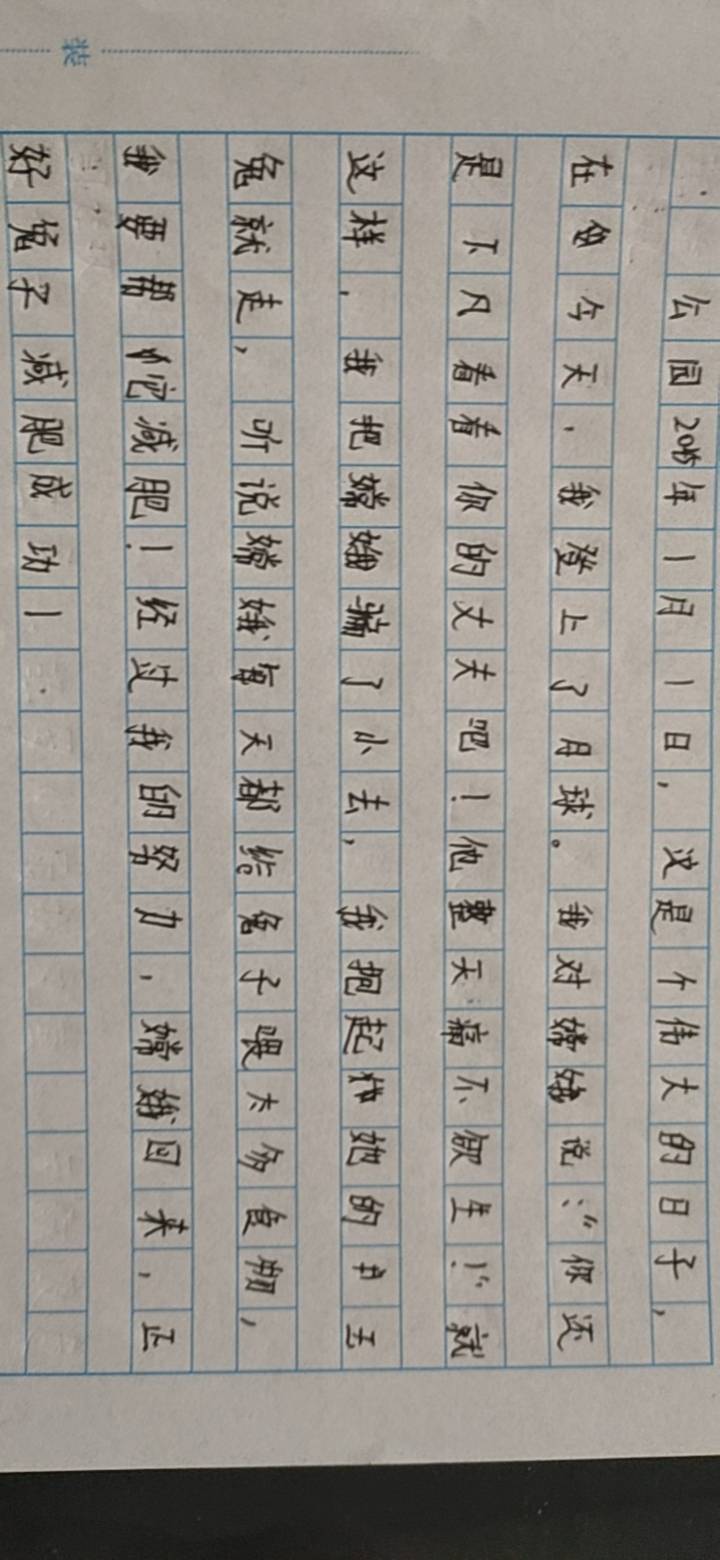 公园20年1月1日，这是个伟大的日子，
在今天，我登上了月球。我对嫦娥说：“你还
是下凡看看你的丈夫吧！他整天痛不欲生！”就
这样，我把嫦娥骗了小去，我抱起她的玉
兔就走，听说嫦娥每天都给兔子喂太多食物，
我要帮它减肥！经过我的努力，嫦娥回来，正
好兔子减肥成功！
装